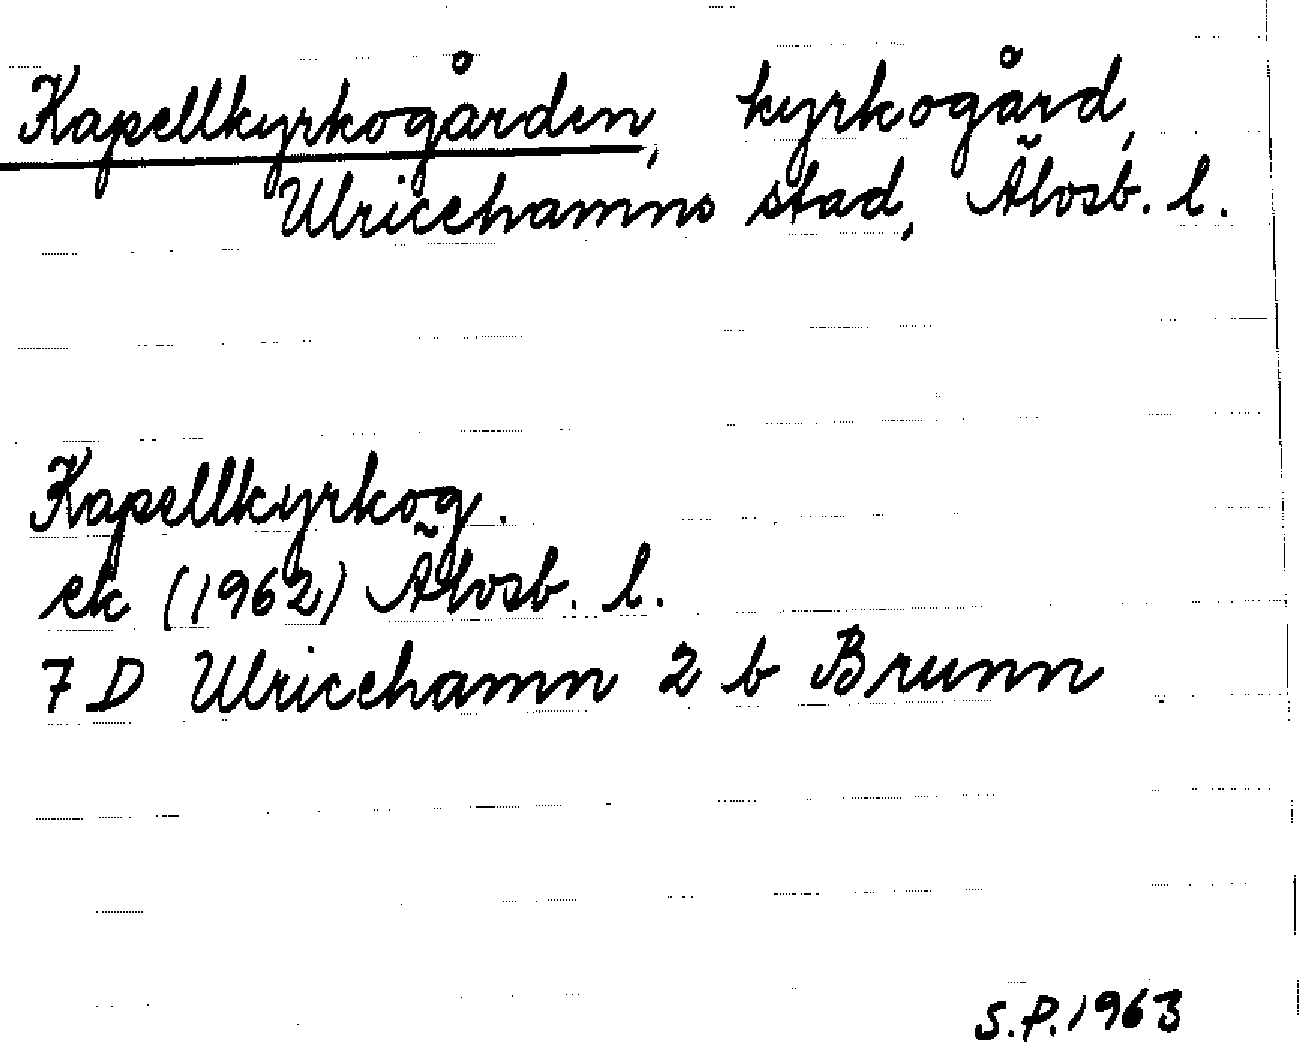 Kapellkyrkogården, kyrkogård,
Ulricehamns stad, Älvsb. l.
Kapellkyrkog.
ek (1962) Älvsb. l.
7 D Ulricehamn 2 b Brunn
S.P. 1963